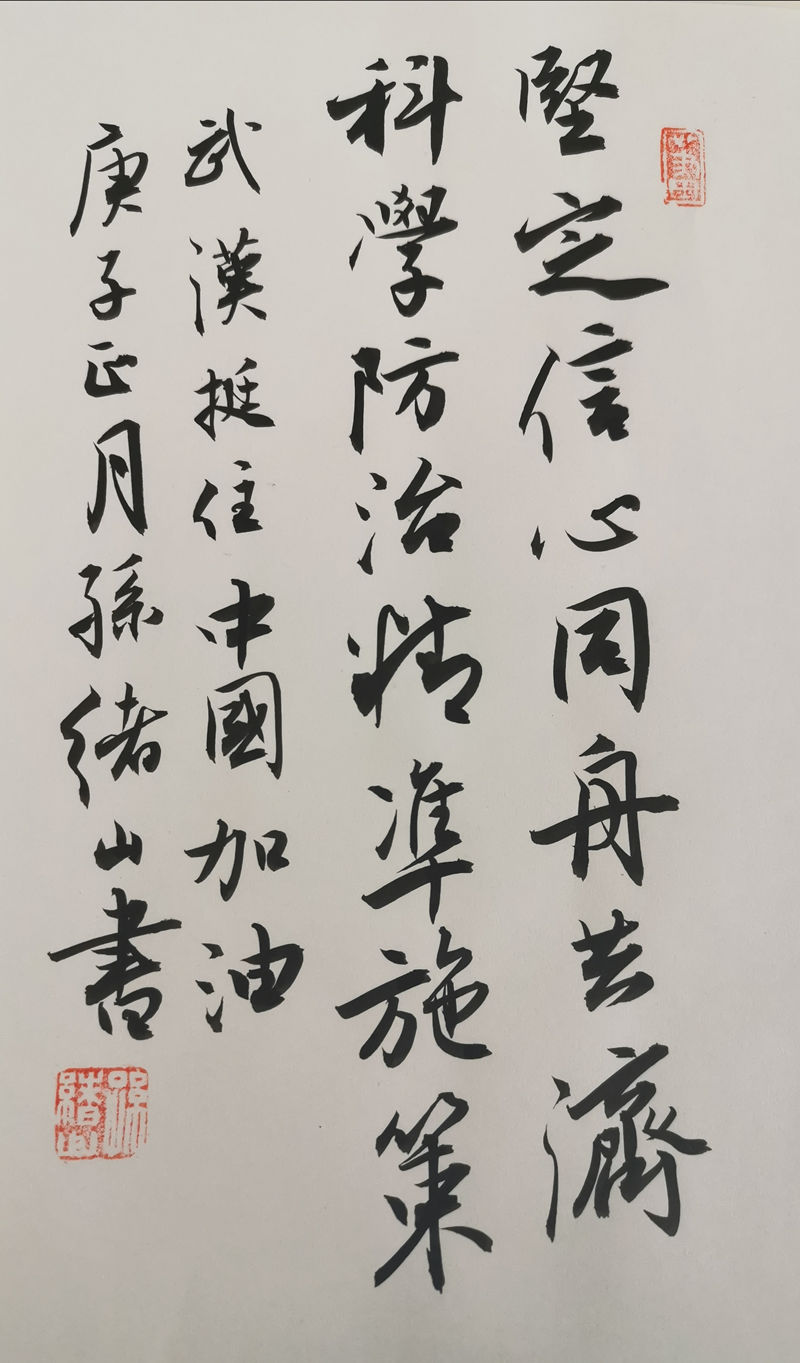 堅定信心同舟共濟
科學防治精準施策
武漢挺住中國加油
庚子正月孫緒山書
孫緒山